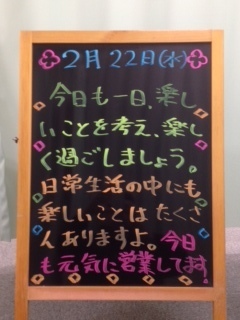 2月22日(水)
今日も一日、楽し
いことを考え、楽し
く過ごしましょう。
日常生活の中にも
楽しいことはたくさ
んありますよ。今日
も元気に営業してます。